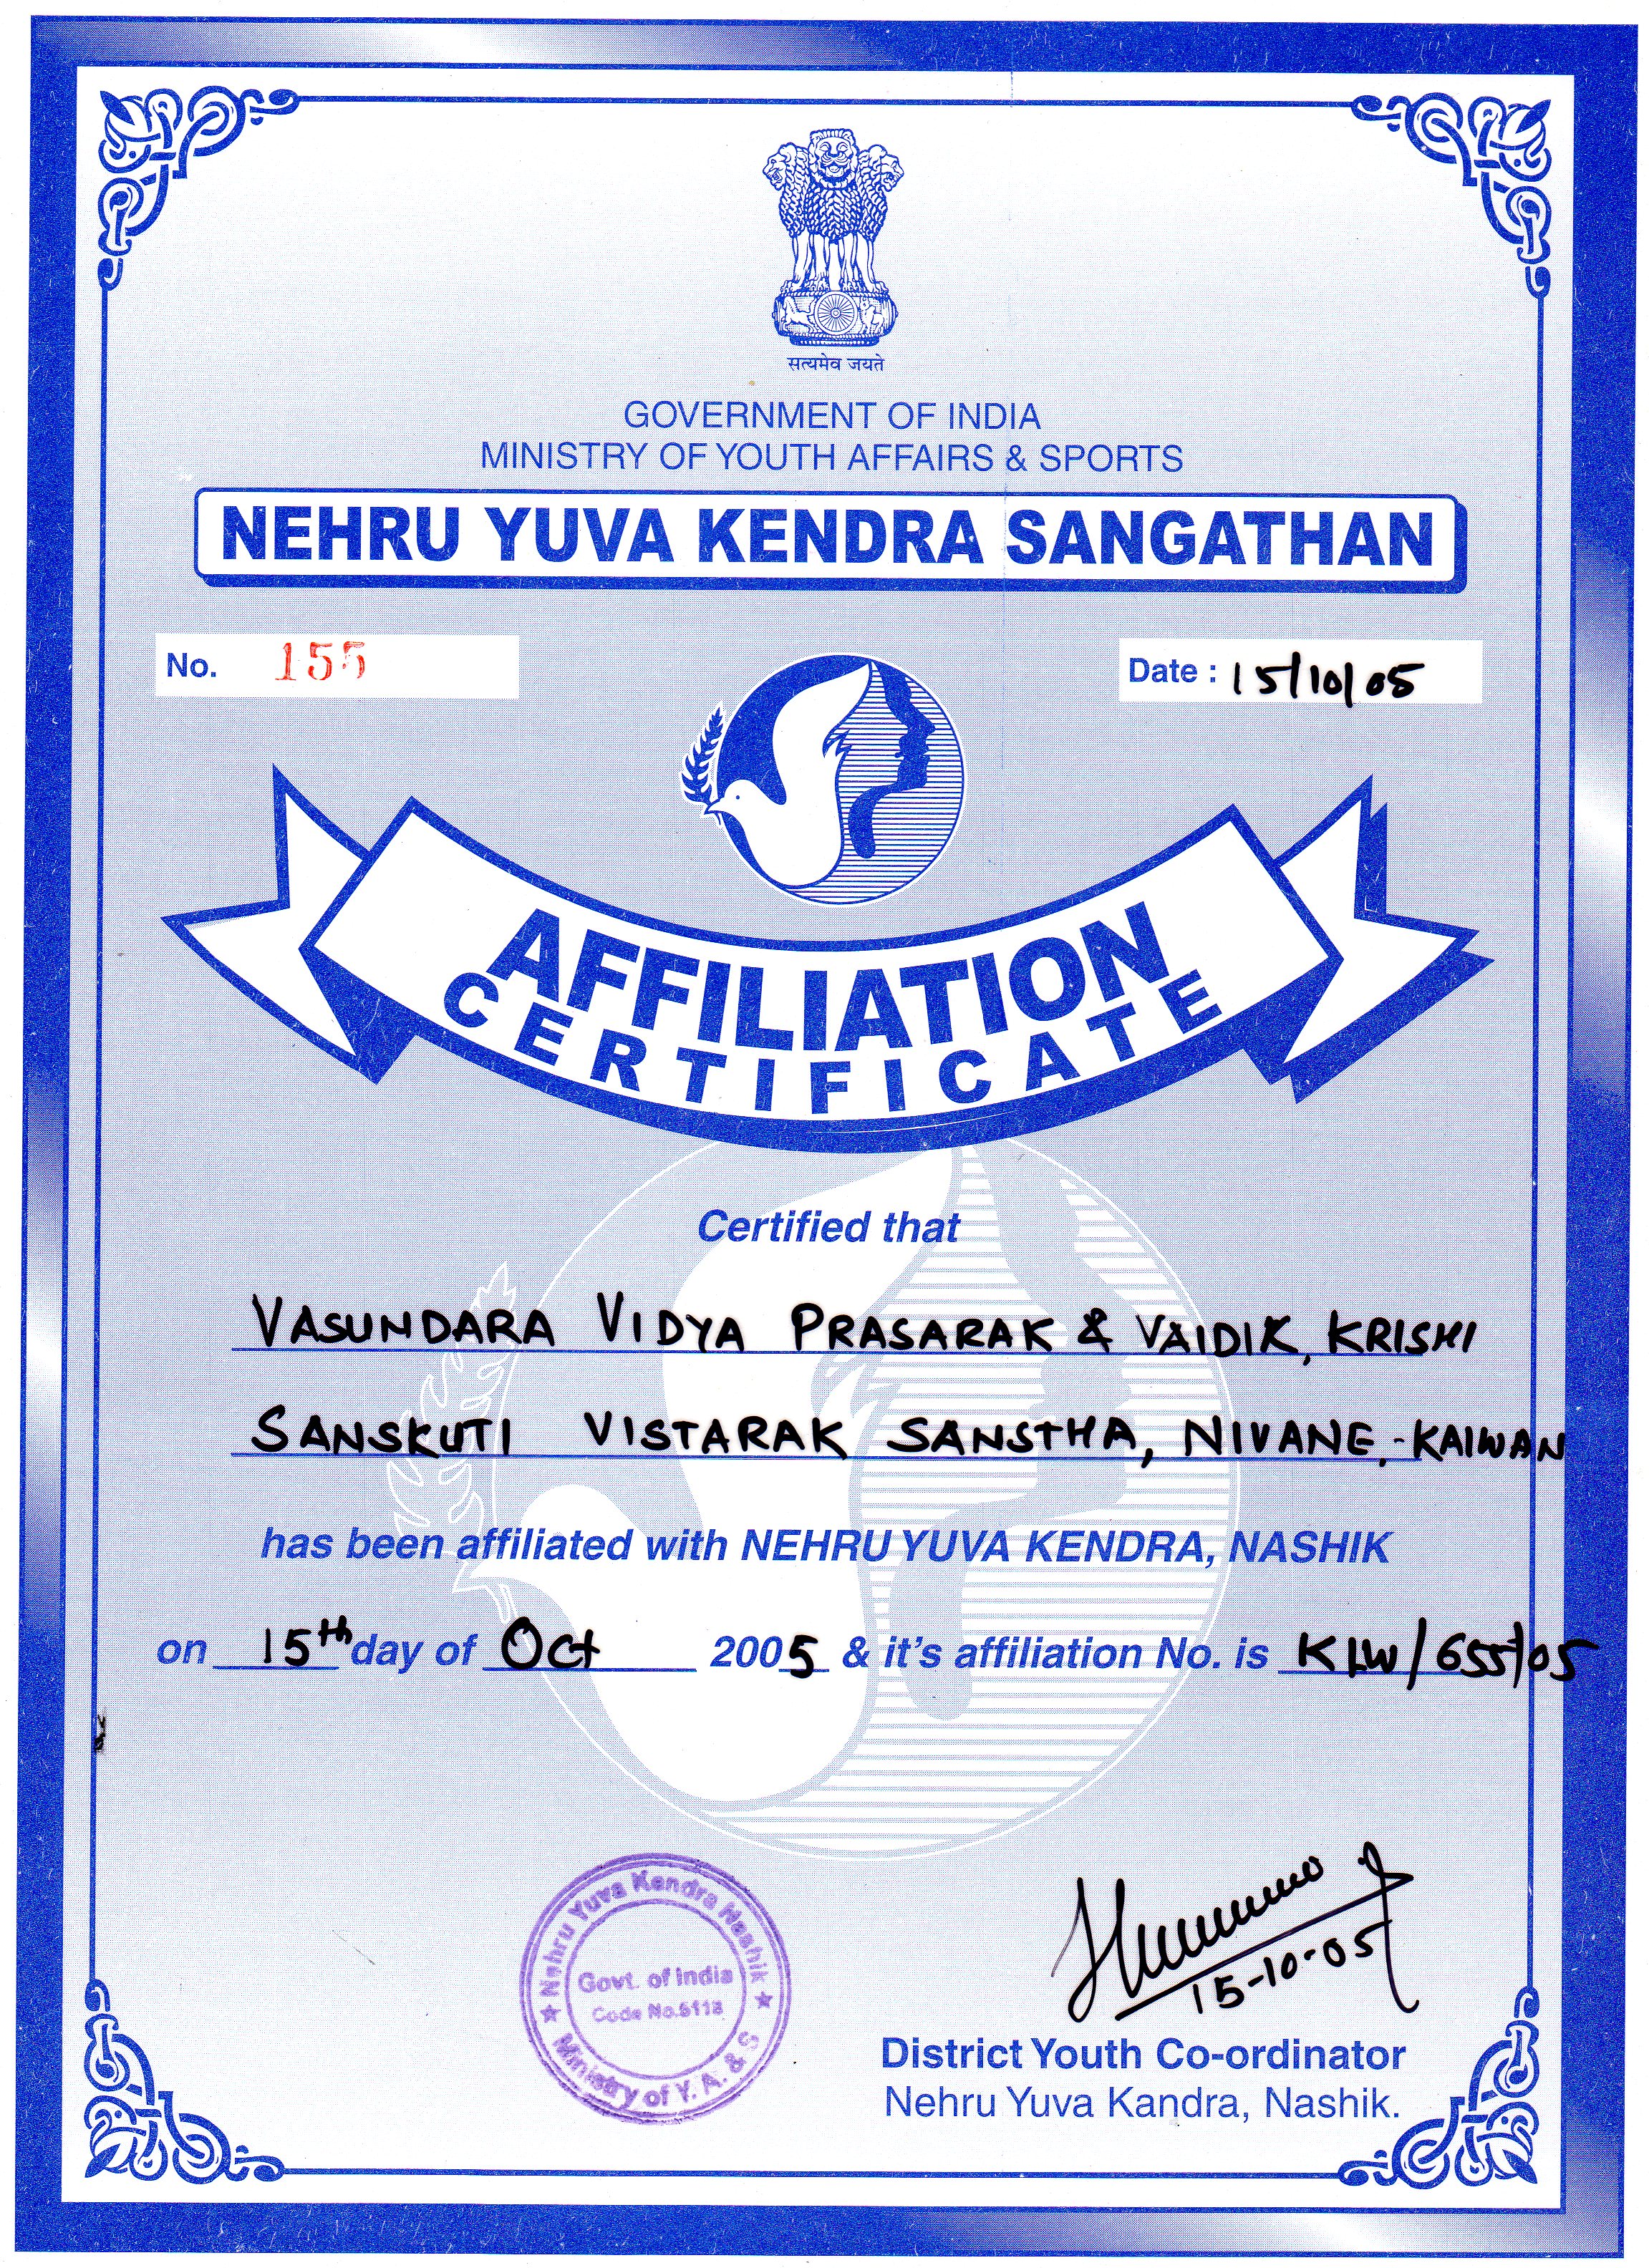 सत्यमेव जयते
GOVERNMENT OF INDIA
MINISTRY OF YOUTH AFFAIRS & SPORTS
NEHRU YUVA KENDRA SANGATHAN
No. 155
Date : 15/10/05
AFFILIATION
CERTIFICATE
Certified that
VASUNDARA VIDYA PRASARAK & VAIDIK, KRISHI
SANSKUTI VISTARAK SANSTHA, NIVANE,-KALWAN
has been affiliated with NEHRU YUVA KENDRA, NASHIK
on 15th day of Oct 2005 & it's affiliation No. is KLW/655/05
Nehru Yuva Kendra Nashik
Govt. of India
Code No.5118
Ministry of Y. A. & S
15-10-05
District Youth Co-ordinator
Nehru Yuva Kandra, Nashik.